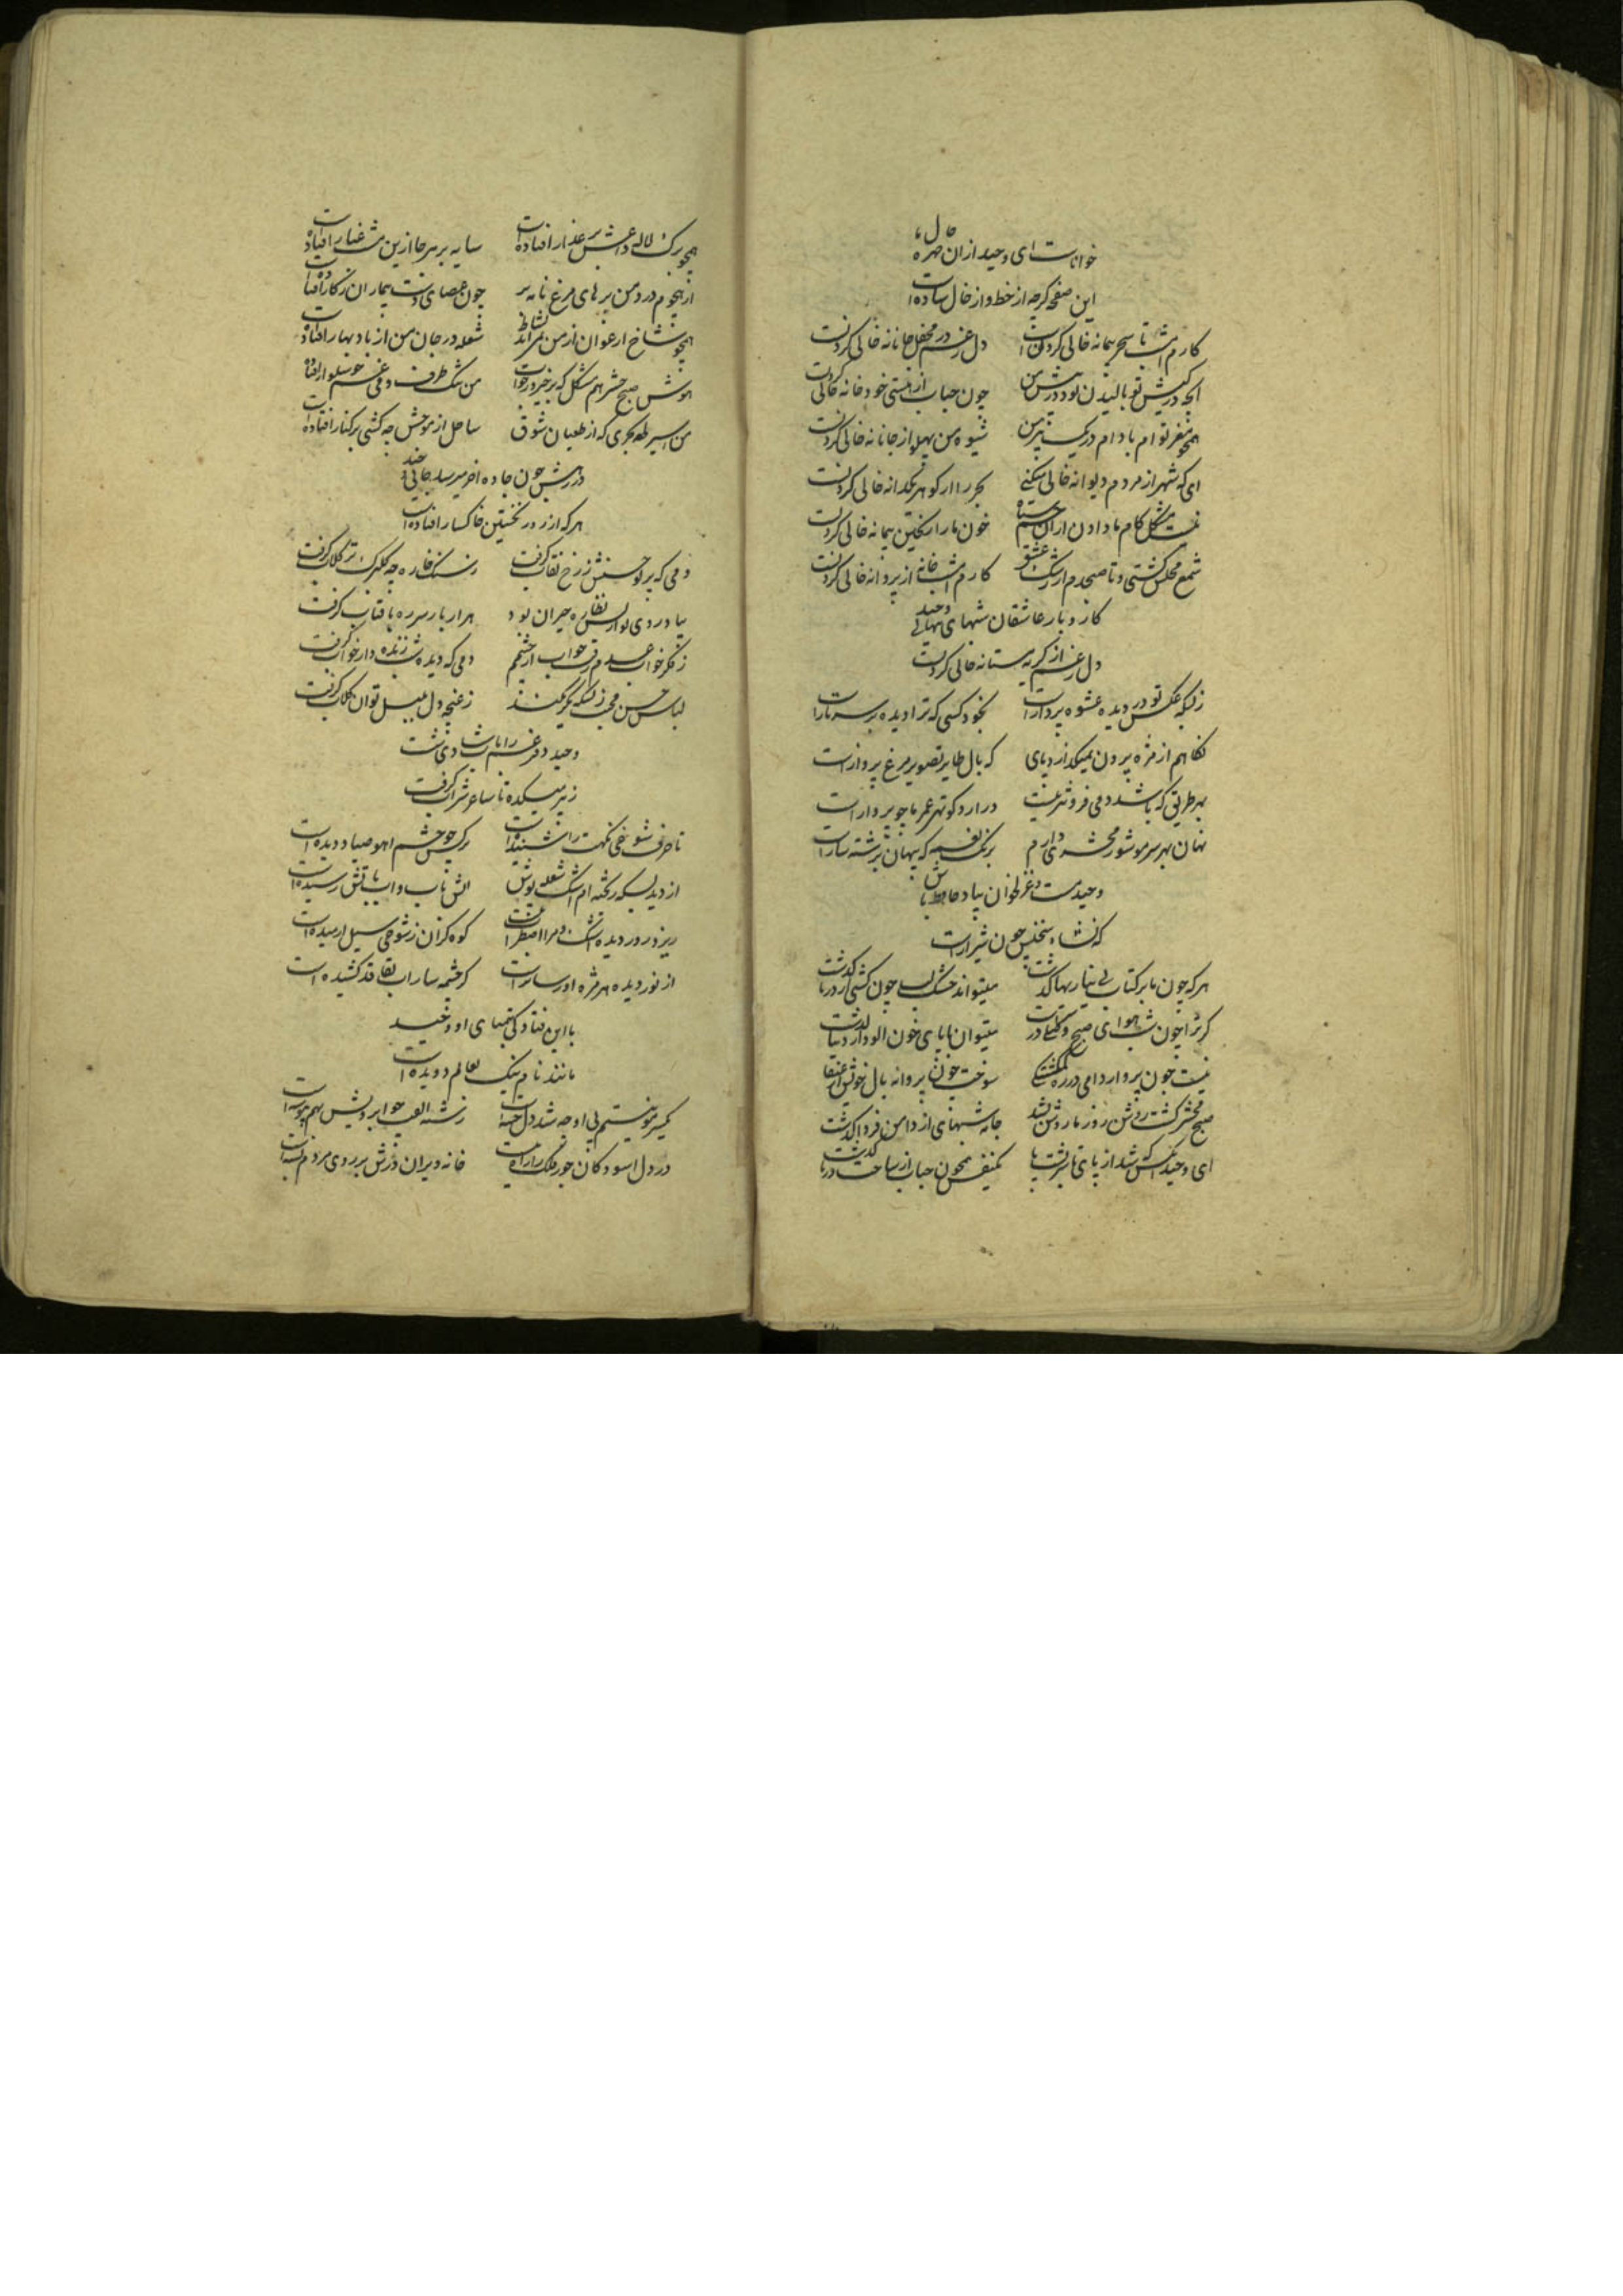 خواناست ای وحید ازان چهره حال ما
این صفحه گرچه از خط و از خال ساده است
کارم امشب تا سحر پیمانه خالی کردنست دل ز غم در محفل جانانه خالی کردنست
آنچه در کیش تو بالیدن بود در پیش من چون حباب از هستی خود خانه خالی کردنست
همچو مغز توام بادام در یک پیرهن شیوه من پهلو از جانانه خالی کردنست
ای که شهر از مردم دیوانه خالی میکنی بحر را از گوهر یکدانه خالی کردنست
نیست مشکل کام ما دادن ازان چشم سیاه خون ما را ریختن پیمانه خالی کردنست
شمع محفل گشتی و تا صبحدم از رشک عشق کارم امشب خانه از پروانه خالی کردنست
کار و بار عاشقان شبهای تنهائی وحید
دل ز غم از گریه مستانه خالی کردنست
ز بسکه عکس تو در دیده عشوه پرداز است بخود کسی که ترا دیده بر سر ناز است
نگاهم از مژه بیرون نمیگذارد پای که بال طایر تصویر مرغ پرواز است
بهر طریق که باشد دمی فروتر نیست در ارد کوتهی عمر ما چو پرواز است
نهان بهر سر مو شور محشری دارم برنگ نغمه که پنهان برشته ساز است
وحید مست و غزلخوان بیاد حافظ باش
که نشاء سخنش چون شراب شیراز است
هرکه چون ما بر کتاب بی نیازیها گذشت میتواند خشک لب چون کشتی از دریا گذشت
گر ترا چون شب هوای صبح وصلی در سرست میتوان با پای خون آلود از دنیا گذشت
نیست چون پرواز دامی در ره گمگشتگی سوخت چون پروانه بال خویش از عنقا گذشت
صبح محشر گشت روشن روز ما روشن نشد جامه شبهای از دامن فردا گذشت
ای وحید آتش شد از پای تا بر پشت پا یکنفس همچون حباب از ساحت دریا گذشت
همچو برگ لاله داغش بر عذار افتاده است سایه بر هر جا ازین مشت غبار افتاده است
از هجوم درد من پرهای مرغ نامه بر چون عصای دست بیماران ز کار افتاده است
همچو شاخ ارغوان از من نمی آید نشاط شعله در جان من از باد بهار افتاده است
هوش صبح حشر هم مشکل که برخیزد ز خواب من تنک ظرف و می غم خوشگوار افتاده است
من اسیر لطمه بحری که از طغیان شوق ساحل از موجش چو کشتی بر کنار افتاده است
در رهش چون جاده آخر میرسد جائی وحید
هرکه از روز نخستین خاکسار افتاده است
دمی که پرتو حسنش ز رخ نقاب گرفت ز سنگ خاره چو گلبرگ تر گلاب گرفت
بیاد روی تو از بس نظاره حیران بود هزار بار سر ره بآفتاب گرفت
ز فکر خواب عدم رفت خواب از چشمم دمی که دیده شب زنده دار خواب گرفت
لباس حسن محبت ز بسکه یکرنگند ز غنچه دل بلبل توان گلاب گرفت
وحید دفتر غم را بآب شادی شست
ز پیر میکده تا ساغر شراب گرفت
تا حرف شوخی نگهت را شنیده است نرگس چو چشم آهوی صیاد دیده است
از دیده بسکه ریخته ام اشک شعله پوش آتش بآب و آب بآتش رسیده است
ریزد ز دیده اشک و مرا اضطراب نیست کوه گران ز شوخی سیل آرمیده است
از نور دیده هر مژه او رساتر است کز چشمه سار آب بقا قد کشیده است
با این فتادگی تمنای او وحید
مانند نام نیک بعالم دویده است
یکسر مو نیستم بی او چه شد دل خسته است رشته الفت چو ابرویش بهم پیوسته است
در دل آسودگان جور فلک را راه نیست خانه ویران درش بر روی مردم بسته است